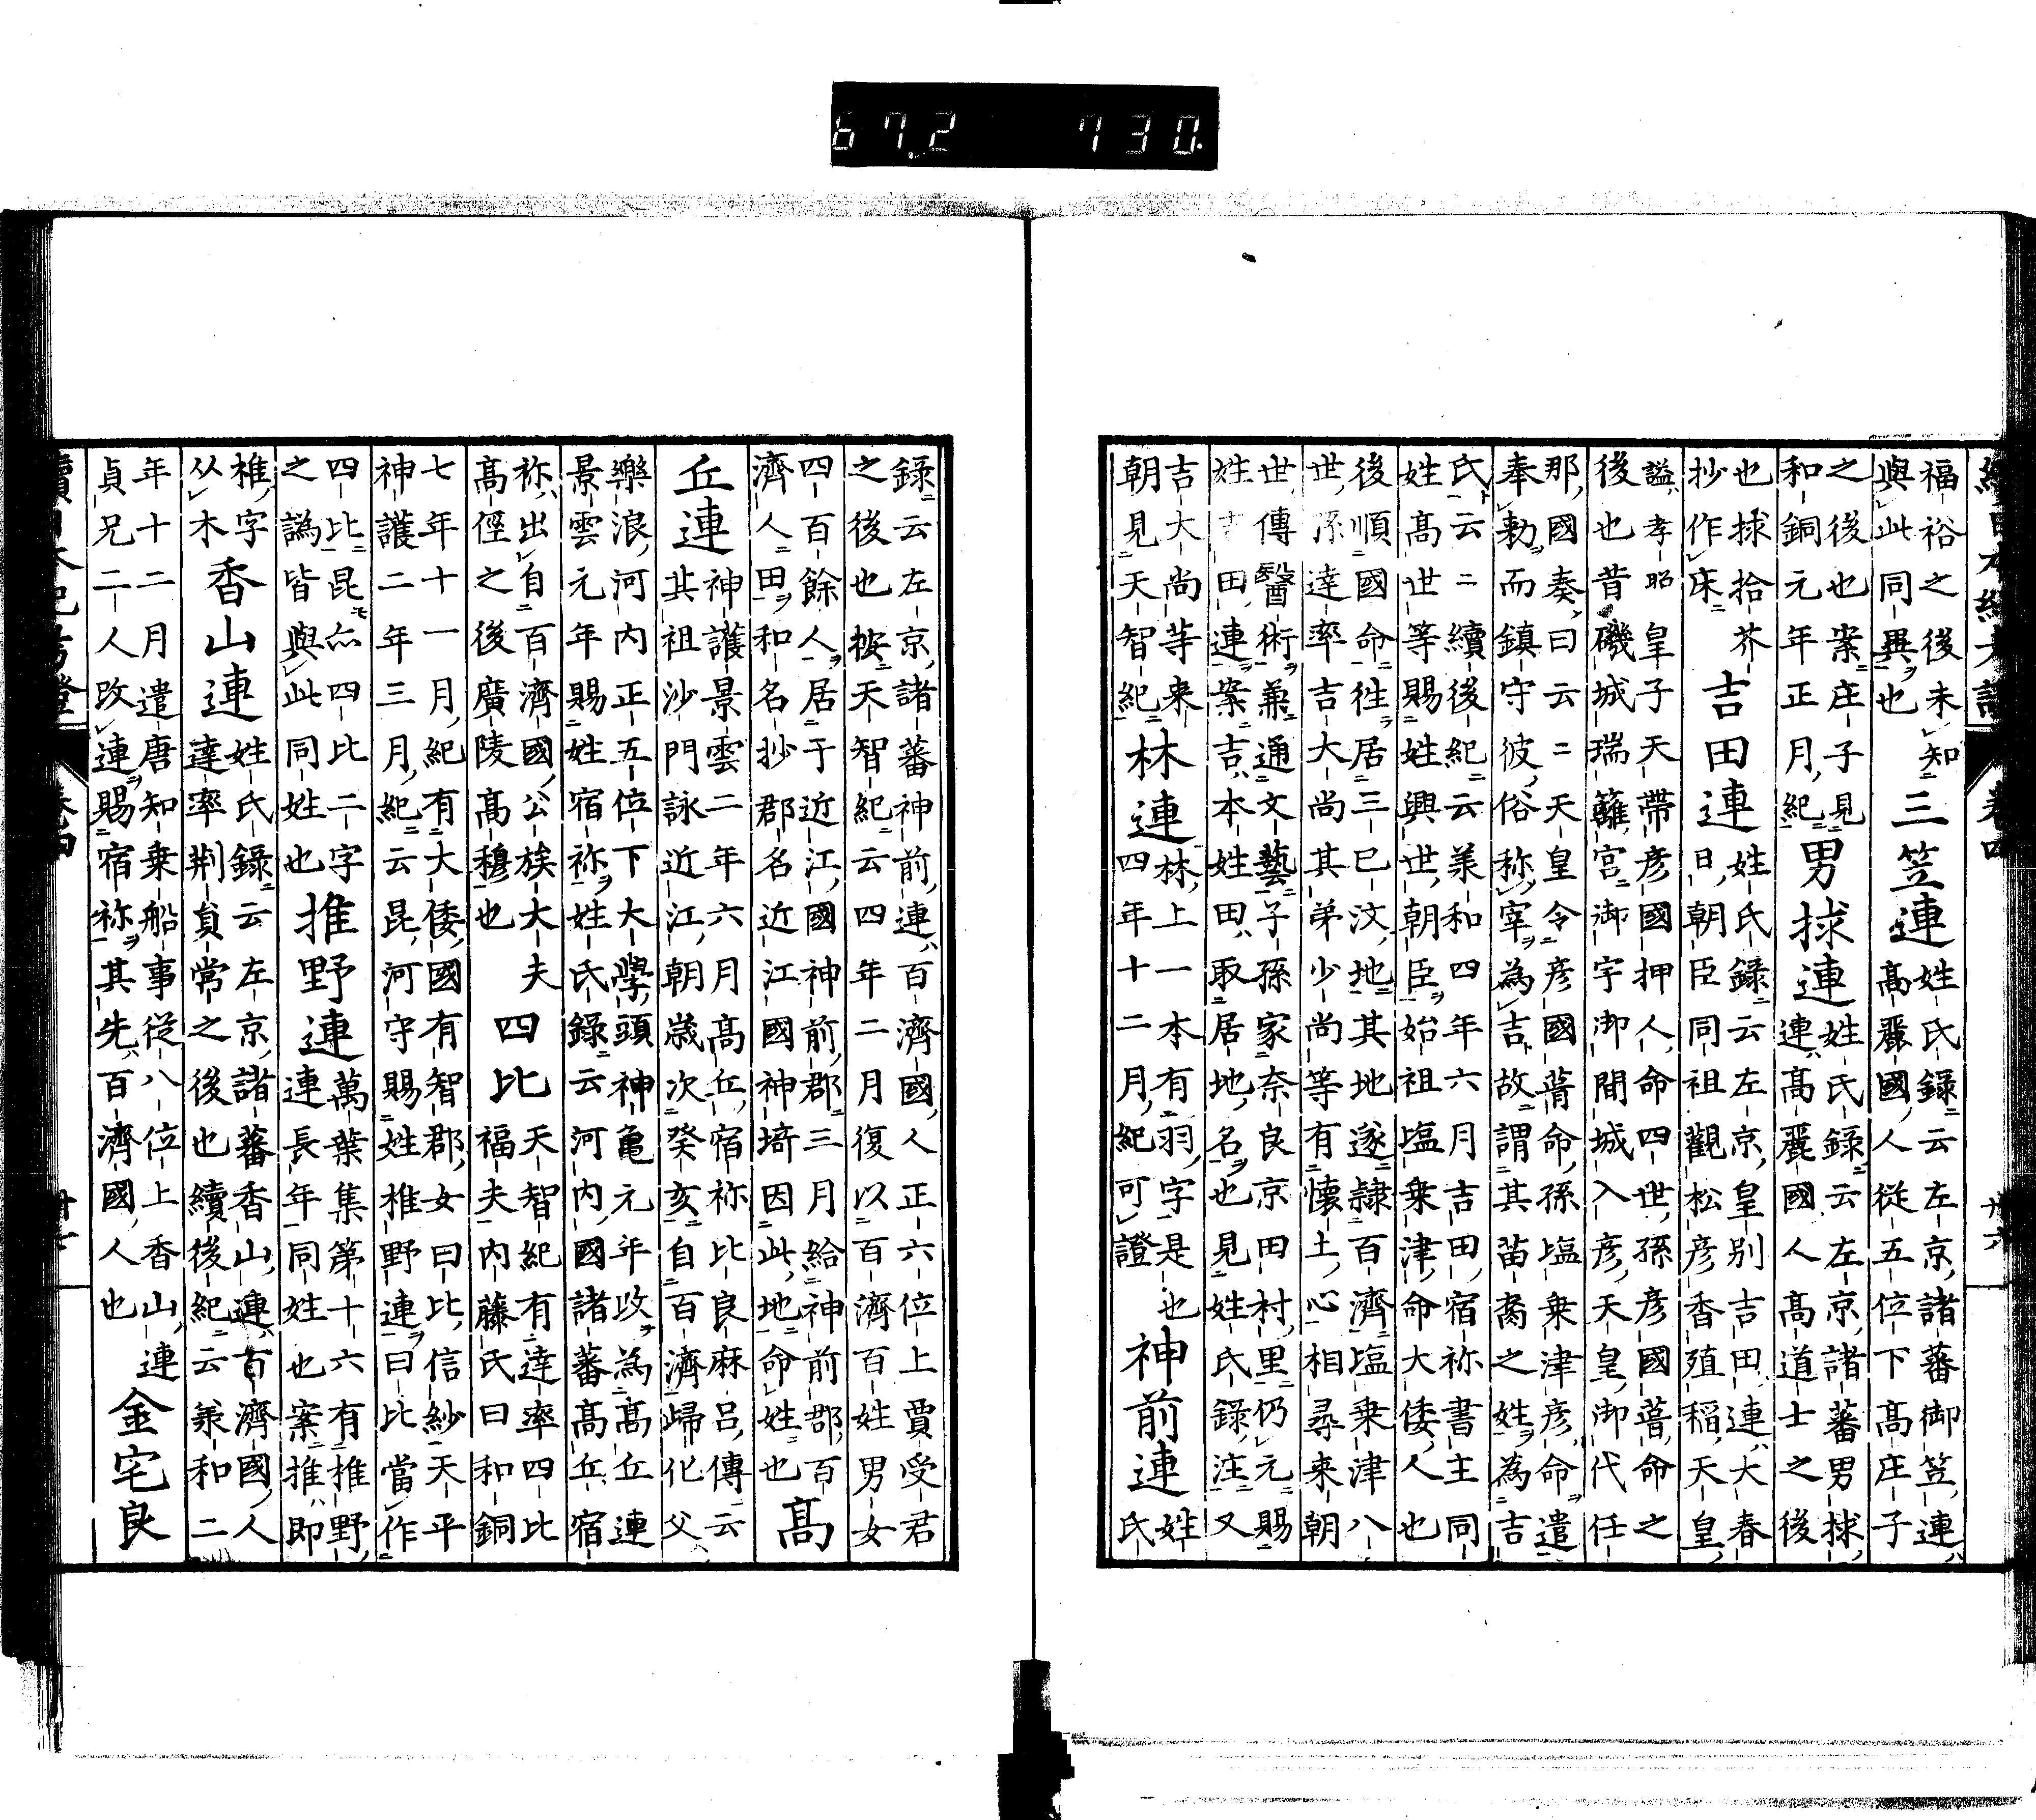 67.2 730.
福裕之後未知
與此同異也
三笠連
姓氏録云左京諸蕃御笠連
高麗國人從五位下高庄子
之後也案庄子見
和銅元年正月紀
男捄連
姓氏録云左京諸蕃男捄
連高麗國人高道士之後
也捄拾芥
抄作床
吉田連
姓氏録云左京皇別吉田連大春
日朝臣同祖觀松彦香殖稲天皇
謚孝昭皇子天帶彦國押人命四世孫彦國葺命之
後也昔磯城瑞籬宮御宇御間城入彦天皇御代任
那國奏曰云二天皇令彦國葺命孫塩乗津彦命遣
奉勅而鎮守彼俗称宰為吉故謂其苗裔之姓為吉
氏云二續後紀云羕和四年六月吉田宿祢書主同
姓高世等賜姓興世朝臣始祖塩乗津命大倭人也
後順國命徃居三巳汶地其地遂隷百濟塩乗津八
世孫達率吉大尚其弟少尚等有懷土心相尋来朝
世傳醫術兼通文藝子孫家奈良京田村里仍元賜
姓吉田連案吉本姓田取居地名也見姓氏録注又
吉大尚等来
朝見天智紀
林連
林上一本有羽字是也
四年十二月紀可證
神前連
姓
氏
録云左京諸蕃神前連百濟國人正六位上賈受君
之後也按天智紀云四年二月復以百濟百姓男女
四百餘人居于近江國神前郡三月給神前郡百
濟人田和名抄郡名近江國神埼因此地命姓也
高
丘連
神護景雲二年六月高丘宿祢比良麻呂傳云
其祖沙門詠近江朝歳次癸亥自百濟歸化父
樂浪河内正五位下大學頭神亀元年改為高丘連
景雲元年賜姓宿祢姓氏録云河内國諸蕃高丘宿
祢出自百濟國公族大夫
高徑之後廣陵高穆也
四比
天智紀有達率四比
福夫内藤氏曰和銅
七年十一月紀有大倭國有智郡女曰比信紗天平
神護二年三月紀云昆河守賜姓椎野連曰比當作
四比昆亦四比二字
之譌皆與此同姓也
推野連
萬葉集第十六有椎野
連長年同姓也案推即
椎字
从木
香山連
姓氏録云左京諸蕃香山連百濟國人
達率荆員常之後也續後紀云羕和二
年十二月遣唐知乗船事從八位上香山連
貞兄二人改連賜宿祢其先百濟國人也
金宅良